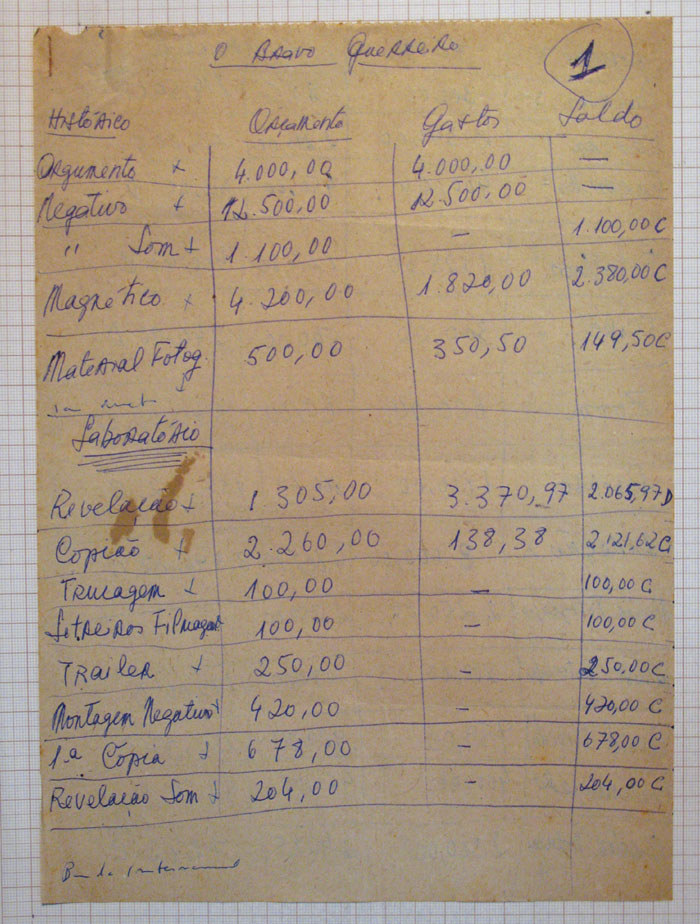 O Bravo Guerreiro
1
Histórico Orçamento Gastos Saldo
Orgumento x 4.000,00 4.000,00 —
Negativo + 12.500,00 12.500,00 —
" Som + 1.100,00 — 1.100,00 C
Magnético + 4.200,00 1.820,00 2.380,00 C
Material Fotog. + 500,00 350,50 149,50 C
Laboratório
Revelação + 1.305,00 3.370,97 2.065,97 D
Copião + 2.260,00 138,38 2.121,62 C
Trucagem + 100,00 — 100,00 C
Letreiros Filmagem 100,00 — 100,00 C
Trailer + 250,00 - 250,00 C
Montagem Negativo + 420,00 - 420,00 C
1ª Cópia + 678,00 - 678,00 C
Revelação Som + 204,00 - 204,00 C
Banda internacional